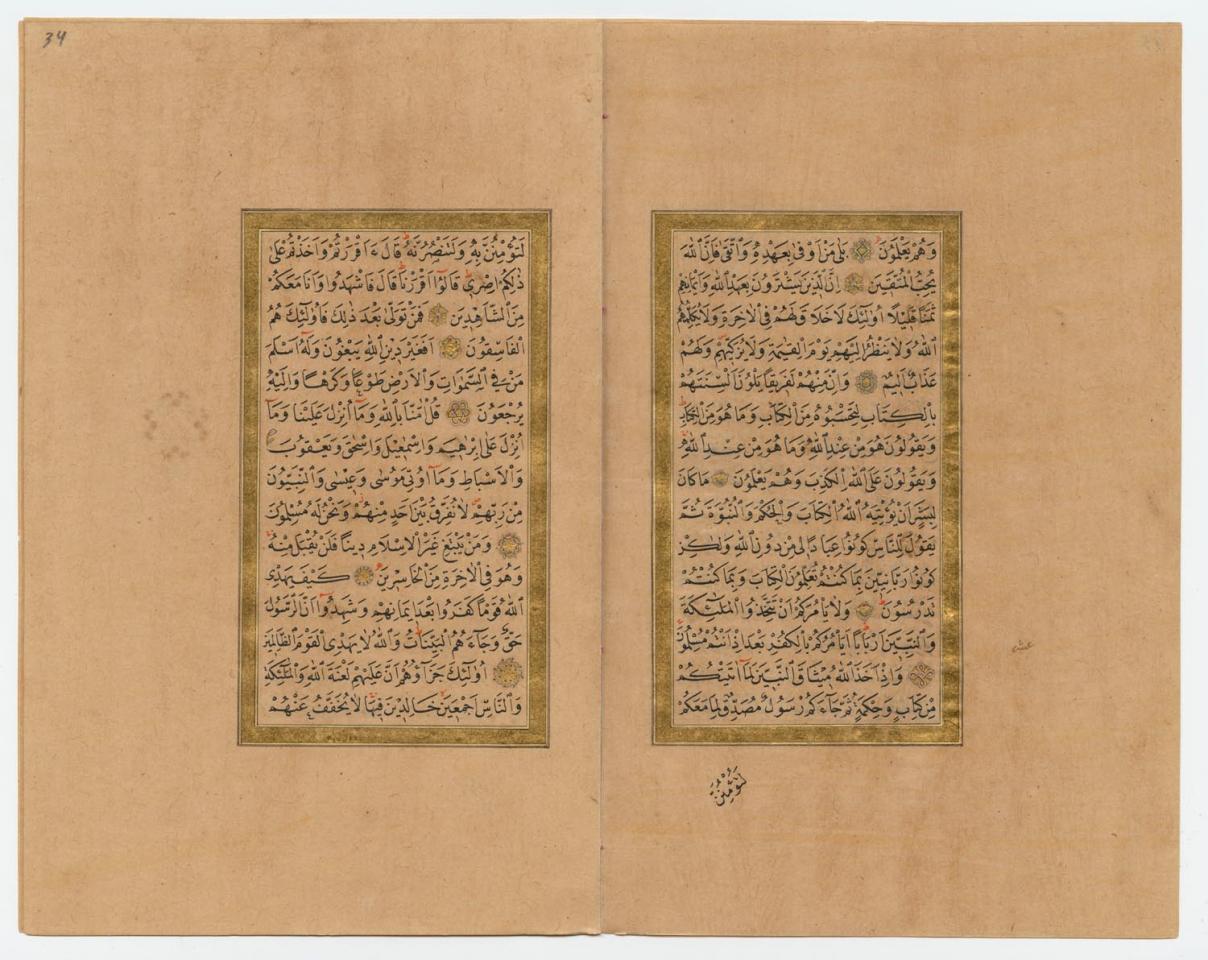 وَهُمْ يَعْلَمُونَ بَلٰى مَنْ اَوْفٰى بِعَهْدِهٖ وَاتَّقٰى فَاِنَّ اللّٰهَ
يُحِبُّ الْمُتَّقٖينَ اِنَّ الَّذٖينَ يَشْتَرُونَ بِعَهْدِ اللّٰهِ وَاَيْمَانِهِمْ
ثَمَنًا قَلٖيلًا اُولٰئِكَ لَا خَلَاقَ لَهُمْ فِى الْاٰخِرَةِ وَلَا يُكَلِّمُهُمُ
اللّٰهُ وَلَا يَنْظُرُ اِلَيْهِمْ يَوْمَ الْقِيٰمَةِ وَلَا يُزَكّٖيهِمْ وَلَهُمْ
عَذَابٌ اَلٖيمٌ وَاِنَّ مِنْهُمْ لَفَرٖيقًا يَلْوُنَ اَلْسِنَتَهُمْ
بِالْكِتَابِ لِتَحْسَبُوهُ مِنَ الْكِتَابِ وَمَا هُوَ مِنَ الْكِتَابِ
وَيَقُولُونَ هُوَ مِنْ عِنْدِ اللّٰهِ وَمَا هُوَ مِنْ عِنْدِ اللّٰهِ
وَيَقُولُونَ عَلَى اللّٰهِ الْكَذِبَ وَهُمْ يَعْلَمُونَ مَا كَانَ
لِبَشَرٍ اَنْ يُؤْتِيَهُ اللّٰهُ الْكِتَابَ وَالْحُكْمَ وَالنُّبُوَّةَ ثُمَّ
يَقُولَ لِلنَّاسِ كُونُوا عِبَادًا لٖى مِنْ دُونِ اللّٰهِ وَلٰكِنْ
كُونُوا رَبَّانِيّٖنَ بِمَا كُنْتُمْ تُعَلِّمُونَ الْكِتَابَ وَبِمَا كُنْتُمْ
تَدْرُسُونَ وَلَا يَاْمُرَكُمْ اَنْ تَتَّخِذُوا الْمَلٰئِكَةَ
وَالنَّبِيّٖنَ اَرْبَابًا اَيَاْمُرُكُمْ بِالْكُفْرِ بَعْدَ اِذْ اَنْتُمْ مُسْلِمُونَ
وَاِذْ اَخَذَ اللّٰهُ مٖيثَاقَ النَّبِيّٖنَ لَمَا اٰتَيْتُكُمْ
مِنْ كِتَابٍ وَحِكْمَةٍ ثُمَّ جَاءَكُمْ رَسُولٌ مُصَدِّقٌ لِمَا مَعَكُمْ
لَتُؤْمِنُنَّ
عشر
34
لَتُؤْمِنُنَّ بِهٖ وَلَتَنْصُرُنَّهُ قَالَ ءَاَقْرَرْتُمْ وَاَخَذْتُمْ عَلٰى
ذٰلِكُمْ اِصْرٖى قَالُوا اَقْرَرْنَا قَالَ فَاشْهَدُوا وَاَنَا مَعَكُمْ
مِنَ الشَّاهِدٖينَ فَمَنْ تَوَلّٰى بَعْدَ ذٰلِكَ فَاُولٰئِكَ هُمُ
الْفَاسِقُونَ اَفَغَيْرَ دٖينِ اللّٰهِ يَبْغُونَ وَلَهُ اَسْلَمَ
مَنْ فِى السَّمٰوَاتِ وَالْاَرْضِ طَوْعًا وَكَرْهًا وَاِلَيْهِ
يُرْجَعُونَ قُلْ اٰمَنَّا بِاللّٰهِ وَمَا اُنْزِلَ عَلَيْنَا وَمَا
اُنْزِلَ عَلٰى اِبْرٰهٖيمَ وَاِسْمٰعٖيلَ وَاِسْحٰقَ وَيَعْقُوبَ
وَالْاَسْبَاطِ وَمَا اُوتِىَ مُوسٰى وَعٖيسٰى وَالنَّبِيُّونَ
مِنْ رَبِّهِمْ لَا نُفَرِّقُ بَيْنَ اَحَدٍ مِنْهُمْ وَنَحْنُ لَهُ مُسْلِمُونَ
وَمَنْ يَبْتَغِ غَيْرَ الْاِسْلَامِ دٖينًا فَلَنْ يُقْبَلَ مِنْهُ
وَهُوَ فِى الْاٰخِرَةِ مِنَ الْخَاسِرٖينَ كَيْفَ يَهْدِى
اللّٰهُ قَوْمًا كَفَرُوا بَعْدَ اٖيمَانِهِمْ وَشَهِدُوا اَنَّ الرَّسُولَ
حَقٌّ وَجَاءَهُمُ الْبَيِّنَاتُ وَاللّٰهُ لَا يَهْدِى الْقَوْمَ الظَّالِمٖينَ
اُولٰئِكَ جَزَاؤُهُمْ اَنَّ عَلَيْهِمْ لَعْنَةَ اللّٰهِ وَالْمَلٰئِكَةِ
وَالنَّاسِ اَجْمَعٖينَ خَالِدٖينَ فٖيهَا لَا يُخَفَّفُ عَنْهُمُ